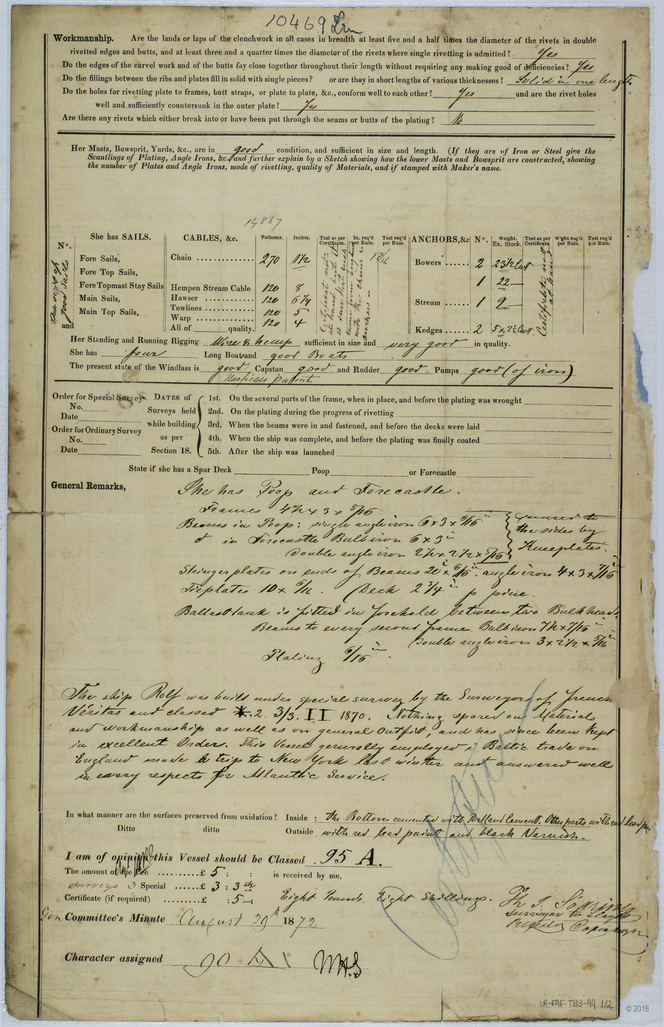 10469 Irn
Workmanship. Are the lands or laps of the clenchwork in all cases in breadth at least five and a half times the diameter of the rivets in double
rivetted edges and butts, and at least three and a quarter times the diameter of the rivets where single rivetting is admitted? Yes
Do the edges of the carvel work and of the butts fay close together throughout their length without requiring any making good of deficiencies? Yes
Do the fillings between the ribs and plates fill in solid with single pieces? or are they in short lengths of various thicknesses? Solid in one length
Do the holes for rivetting plate to frames, butt straps, or plate to plate, &c., conform well to each other? Yes and are the rivet holes
well and sufficiently countersunk in the outer plate? Yes
Are there any rivets which either break into or have been put through the seams or butts of the plating? No
Her Masts, Bowsprit, Yards, &c., are in good condition, and sufficient in size and length. (If they are of Iron or Steel give the
Scantlings of Plating, Angle Irons, &c., and further explain by a Sketch showing how the lower Masts and Bowsprit are constructed, showing
the number of Plates and Angle Irons, mode of rivetting, quality of Materials, and if stamped with Maker's name.
N°. She has SAILS. CABLES, &c. Fathoms. Inches. Test as per Certificate. In. req'd per Rule. Test req'd per Rule. ANCHORS, &c N°. Weight. Ex. Stock. Test as per Certificate. W'ght req'd per Rule. Test req'd per Rule.
Fore Sails, Chain 270 1 1/2 Bowers 2 23 1/2 Cwt
Fore Top Sails, 1 22 —
Fore Topmast Stay Sails Hempen Stream Cable 120 8
Main Sails, Hawser 120 6 1/4 Stream 1 9 —
Main Top Sails, Towlines 120 5
Warp 120 4
and All of quality. Kedges 2 5 & 2 1/2 Cwt
Her Standing and Running Rigging Wire & hemp sufficient in size and very good in quality.
She has four Long Boat and good Boats
The present state of the Windlass is good Capstan good and Rudder good Pumps good (of iron)
Harfield's patent
Order for Special Survey No. Date
Order for Ordinary Survey No. Date
DATES of Surveys held while building as per Section 18.
1st. On the several parts of the frame, when in place, and before the plating was wrought
2nd. On the plating during the progress of rivetting
3rd. When the beams were in and fastened, and before the decks were laid
4th. When the ship was complete, and before the plating was finally coated
5th. After the ship was launched
State if she has a Spar Deck Poop or Forecastle
General Remarks, She has Poop and Forecastle.
Frames 4 1/2 x 3 x 5/16
Beams in Poop: single angle iron 6 x 3 x 5/16 connected to
d° in Forecastle Bulb iron 6 x 3 the sides by
Double angle iron 2 1/2 x 2 1/2 x 5/16 Kneeplates.
Stringer plates on ends of Beams 20 x 6/16 angle iron 4 x 3 x 7/16
Tieplates 10 x 6/16. Deck 2 3/4 p. pine.
Ballast tank is fitted in forehold between two Bulkheads.
Beams to every second frame. Bulb iron 7 1/2 x 7/16
Double angle iron 3 x 2 1/2 x 5/16
Plating 6/16
The ship Rolf was built under special survey by the Surveyors of french
Véritas and classed 2. 3/3. I I 1870. Nothing spared on Materials
and workmanship as well as on general Outfit, and has since been kept
in excellent Order. This Vessel generally employed in Baltic trade on
England made trips to New York last winter and answered well
in every respects for Atlantic Service.
In what manner are the surfaces preserved from oxidation? Inside: the Bottom cemented with Portland Cement. Other parts with red lead pt.
Ditto ditto Outside with red lead paint and black Varnish.
I am of opinion this Vessel should be Classed 95 A.
The amount of the Fee £ 5 : : is received by me,
Special £ 3 : 3 :
Certificate (if required) £ : 5 – Eight Pounds Eight Shillings.
Committee's Minute August 29th 1872
Surveyor to Lloyd's
Register Copenhagen
Character assigned 90 A1
LR-FAF-TB3-44 1/2
© 2018